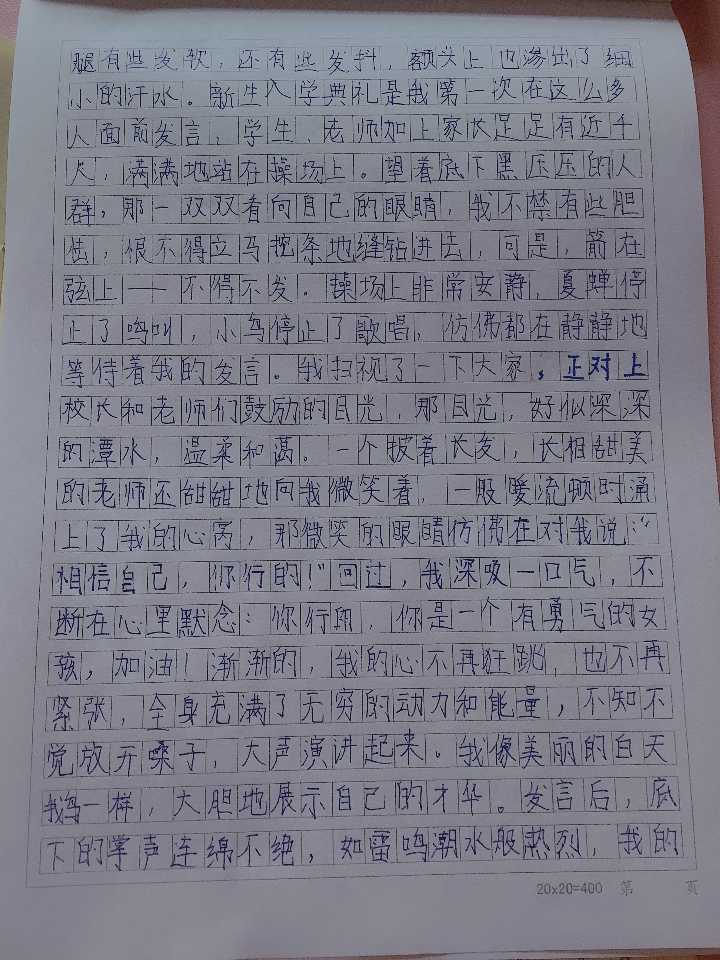 腿有些发软，还有些发抖，额头上也渗出了细
小的汗水。新生入学典礼是我第一次在这么多
人面前发言，学生、老师加上家长足足有近千
人，满满地站在操场上。望着底下黑压压的人
群，那一双双看向自己的眼睛，我不禁有些胆
怯，恨不得立马挖条地缝钻进去，可是，箭在
弦上——不得不发。操场上非常安静，夏蝉停
止了鸣叫，小鸟停止了歌唱，仿佛都在静静地
等待着我的发言。我扫视了一下大家，正对上
校长和老师们鼓励的目光，那目光，好似深深
的潭水，温柔和蔼。一个披着长发，长相甜美
的老师还甜甜地向我微笑着，一股暖流顿时涌
上了我的心窝，那微笑的眼睛仿佛在对我说：“
相信自己，你行的！”回过，我深吸一口气，不
断在心里默念：你行的，你是一个有勇气的女
孩，加油！渐渐的，我的心不再狂跳，也不再
紧张，全身充满了无穷的动力和能量，不知不
觉放开嗓子，大声演讲起来。我像美丽的白天
鹅一样，大胆地展示自己的才华。发言后，底
下的掌声连绵不绝，如雷鸣潮水般热烈，我的
20x20=400 第 页